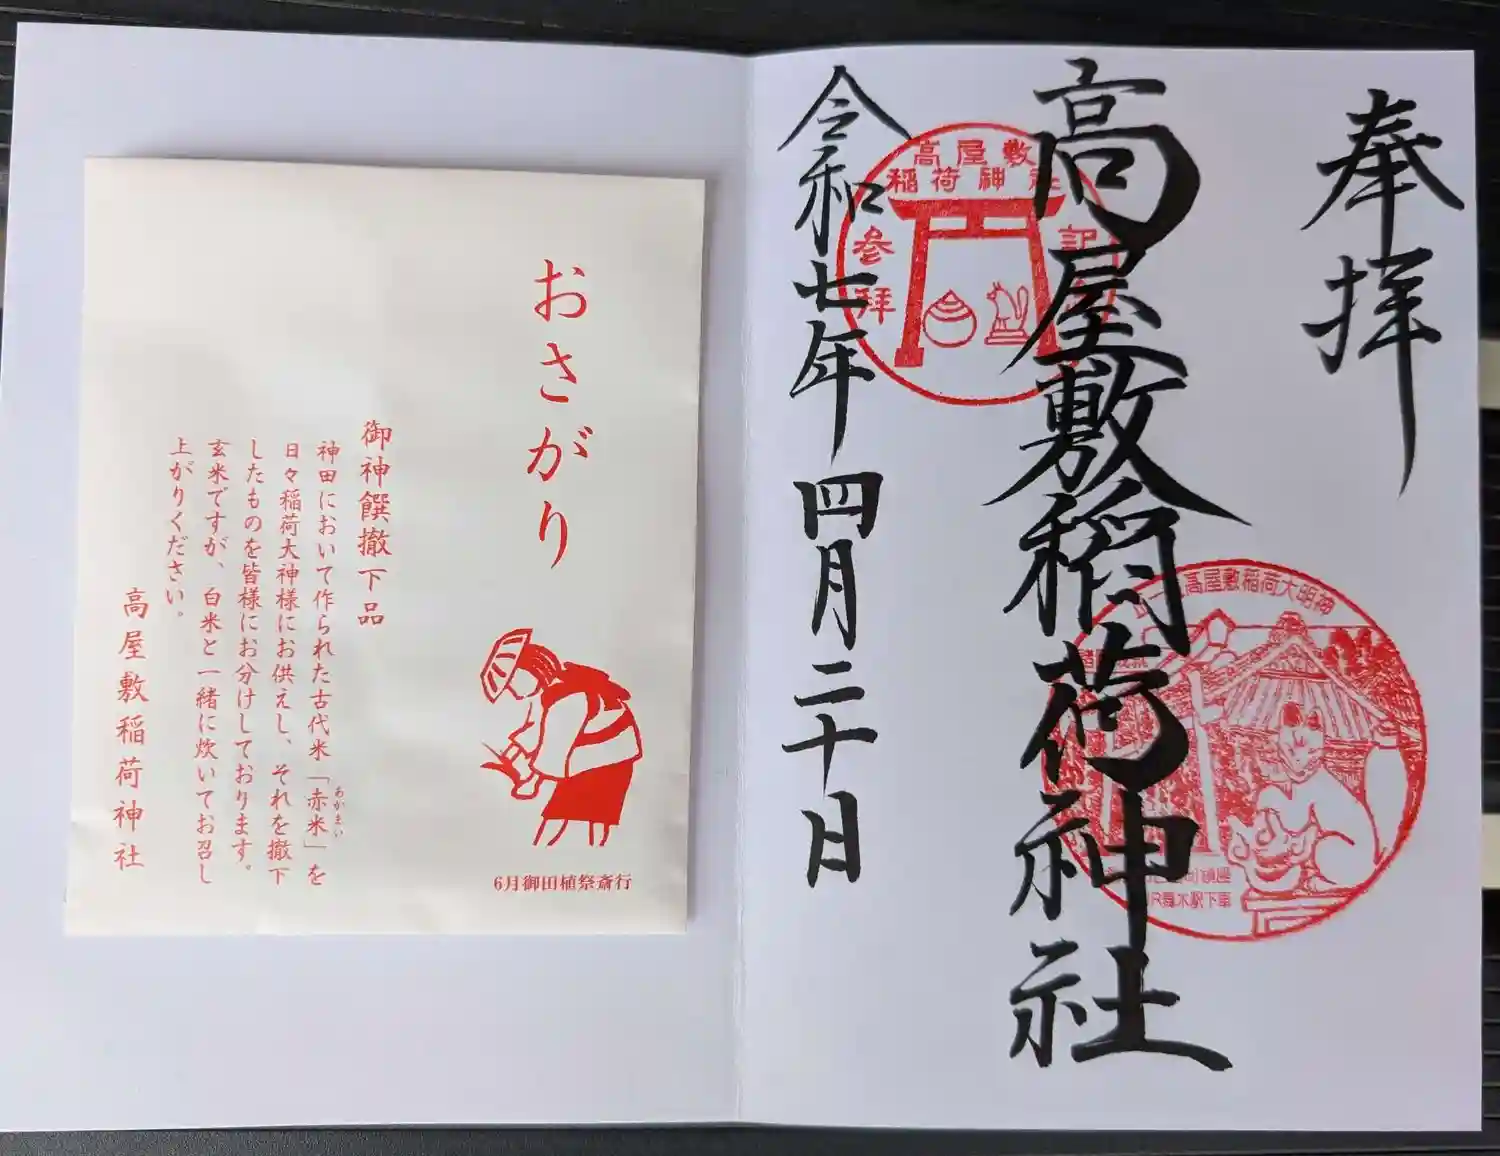 奉拝
高屋敷稲荷神社
令和七年四月二十日
高屋敷
稲荷神社
参拝
記
高屋敷稲荷大明神
JR舞木駅下車
おさがり
御神饌撤下品
神田において作られた古代米「赤米」を
あかまい
日々稲荷大神様にお供えし、それを撤下
したものを皆様にお分けしております。
玄米ですが、白米と一緒に炊いてお召し
上がりください。
高屋敷稲荷神社
6月御田植祭斎行